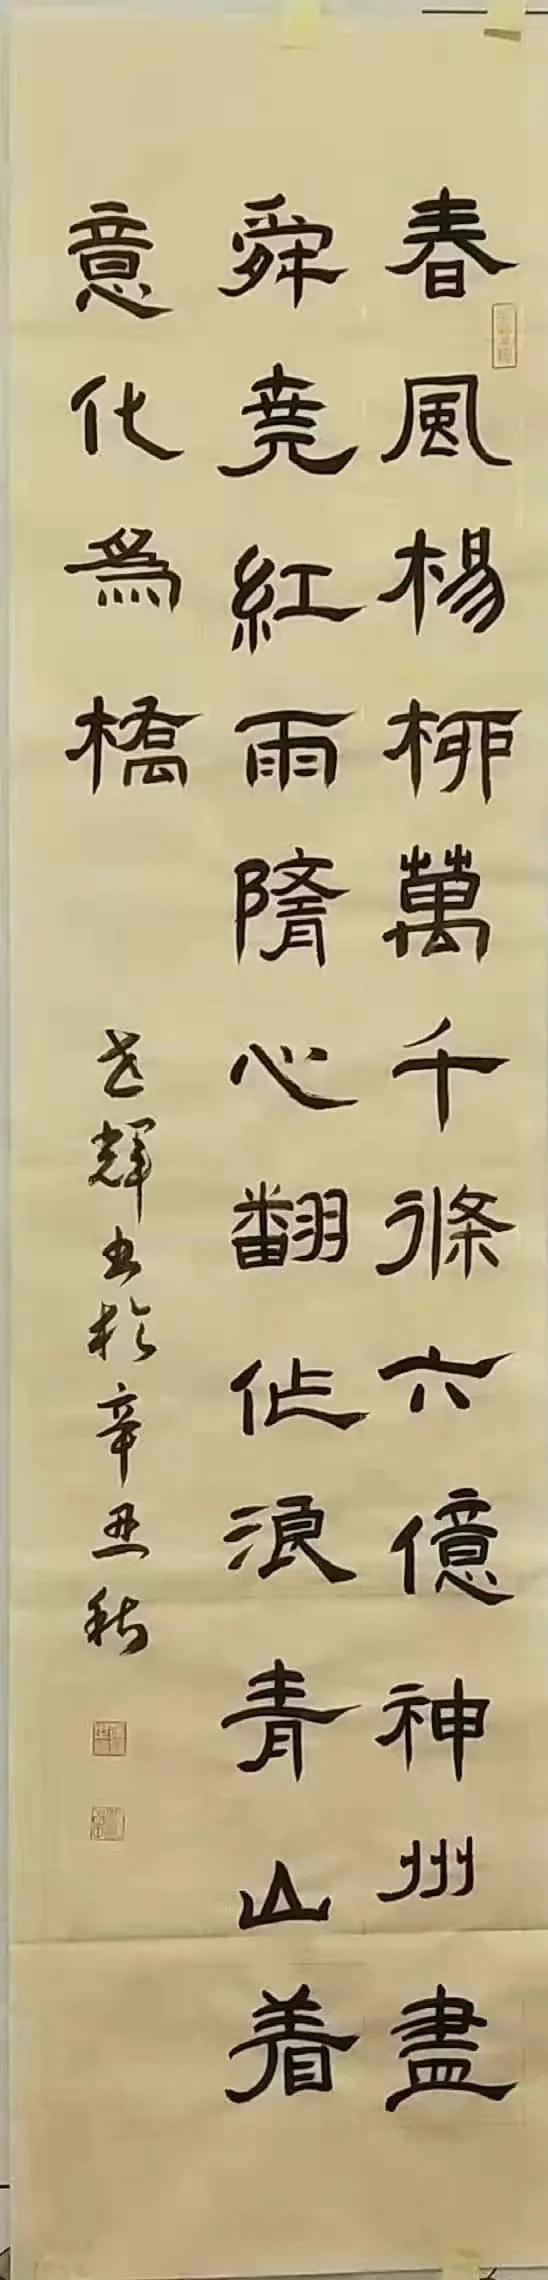 春風楊柳萬千條六億神州盡
舜堯紅雨隨心翻作浪青山着
意化為橋
輝書於辛丑秋